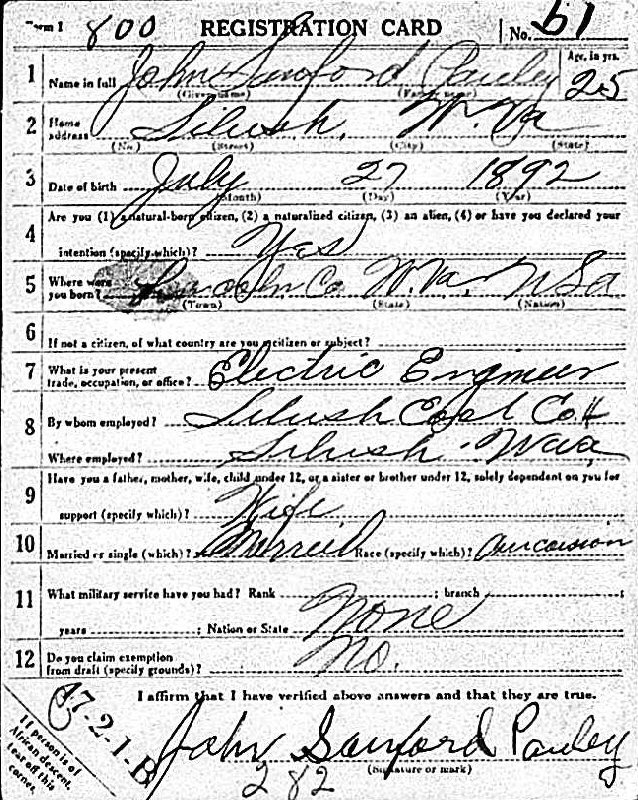 Form 1 800 REGISTRATION CARD No. 61
1 Name in full John Sanford Pauley Age, in yrs. 25
(Given name) (Family name)
2 Home address Silush, W. Va
(No.) (Street) (City) (State)
3 Date of birth July 27 1892
(Month) (Day) (Year)
4 Are you (1) a natural-born citizen, (2) a naturalized citizen, (3) an alien, (4) or have you declared your
intention (specify which)? Yes
5 Where were you born? Lincoln Co W. Va. USa
(Town) (State) (Nation)
6 If not a citizen, of what country are you a citizen or subject?
7 What is your present trade, occupation, or office? Electric Engineer
8 By whom employed? Silush Coal Co
Where employed? Silush
9 Have you a father, mother, wife, child under 12, or a sister or brother under 12, solely dependent on you for
support (specify which)? Wife
10 Married or single (which)? Married Race (specify which)?
11 What military service have you had? Rank ; branch ;
years ; Nation or State None
12 Do you claim exemption from draft (specify grounds)? No.
I affirm that I have verified above answers and that they are true.
47-2-1-B
If person is of
African descent,
tear off this
corner.
John Sanford Pauley
(Signature or mark)
282